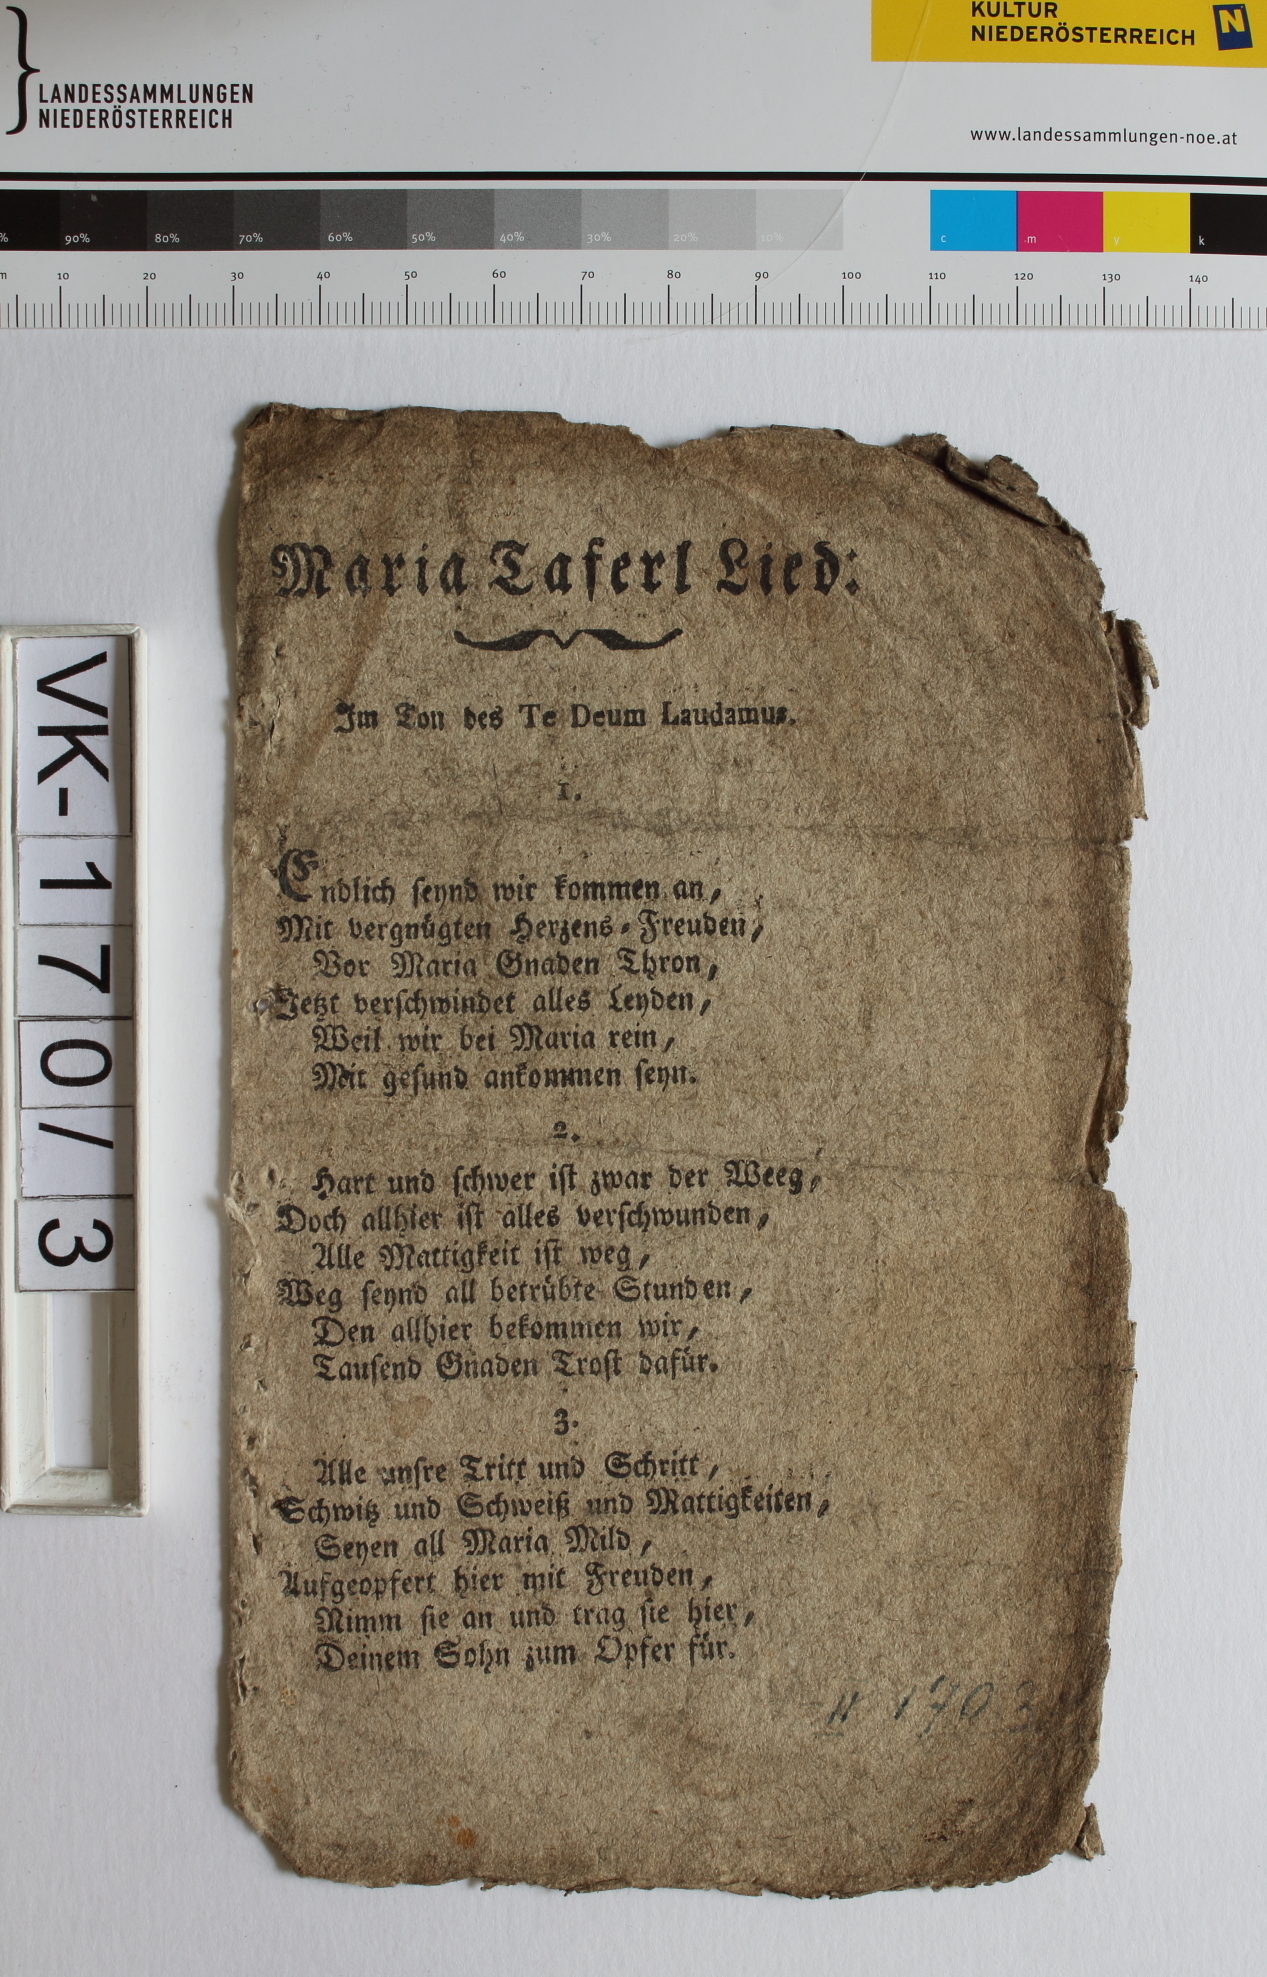 KULTUR
NIEDERÖSTERREICH
N
LANDESSAMMLUNGEN
NIEDERÖSTERREICH
www.landessammlungen-noe.at
% 90% 80% 70% 60% 50% 40% 30% 20% 10% c m y k
m 10 20 30 40 50 60 70 80 90 100 110 120 130 140
VK-170/3
Maria Taferl Lied:
Im Ton des Te Deum Laudamus.
1.
Endlich seynd wir kommen an,
Mit vergnügten Herzens-Freuden,
Vor Maria Gnaden Thron,
Jetzt verschwindet alles Leyden,
Weil wir bei Maria rein,
Mit gesund ankommen seyn.
2.
Hart und schwer ist zwar der Weeg,
Doch allhier ist alles verschwunden,
Alle Mattigkeit ist weg,
Weg seynd all betrübte Stunden,
Den allhier bekommen wir,
Tausend Gnaden Trost dafür.
3.
Alle unsre Tritt und Schritt,
Schwitz und Schweiß und Mattigkeiten,
Seyen all Maria Mild,
Aufgeopfert hier mit Freuden,
Nimm sie an und trag sie hier,
Deinem Sohn zum Opfer für.
1703